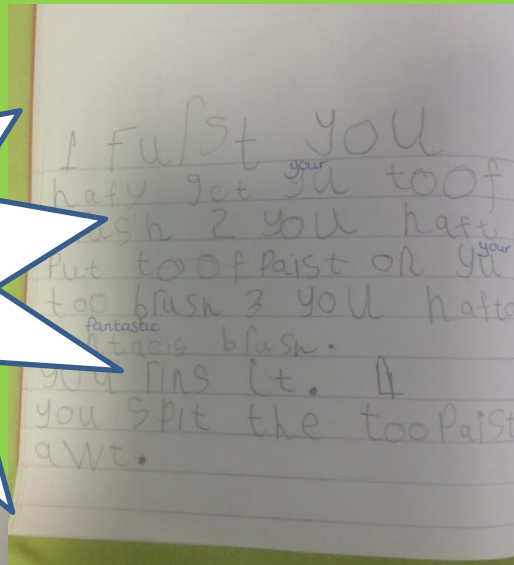 1 Furst you
your
hafy get yu toof
brush 2 you haft
your
Put toof Paist on yu
too brush 3 you hafto
fantastic
brush.
you rins it. 4
you spit the tooPaist
awt.